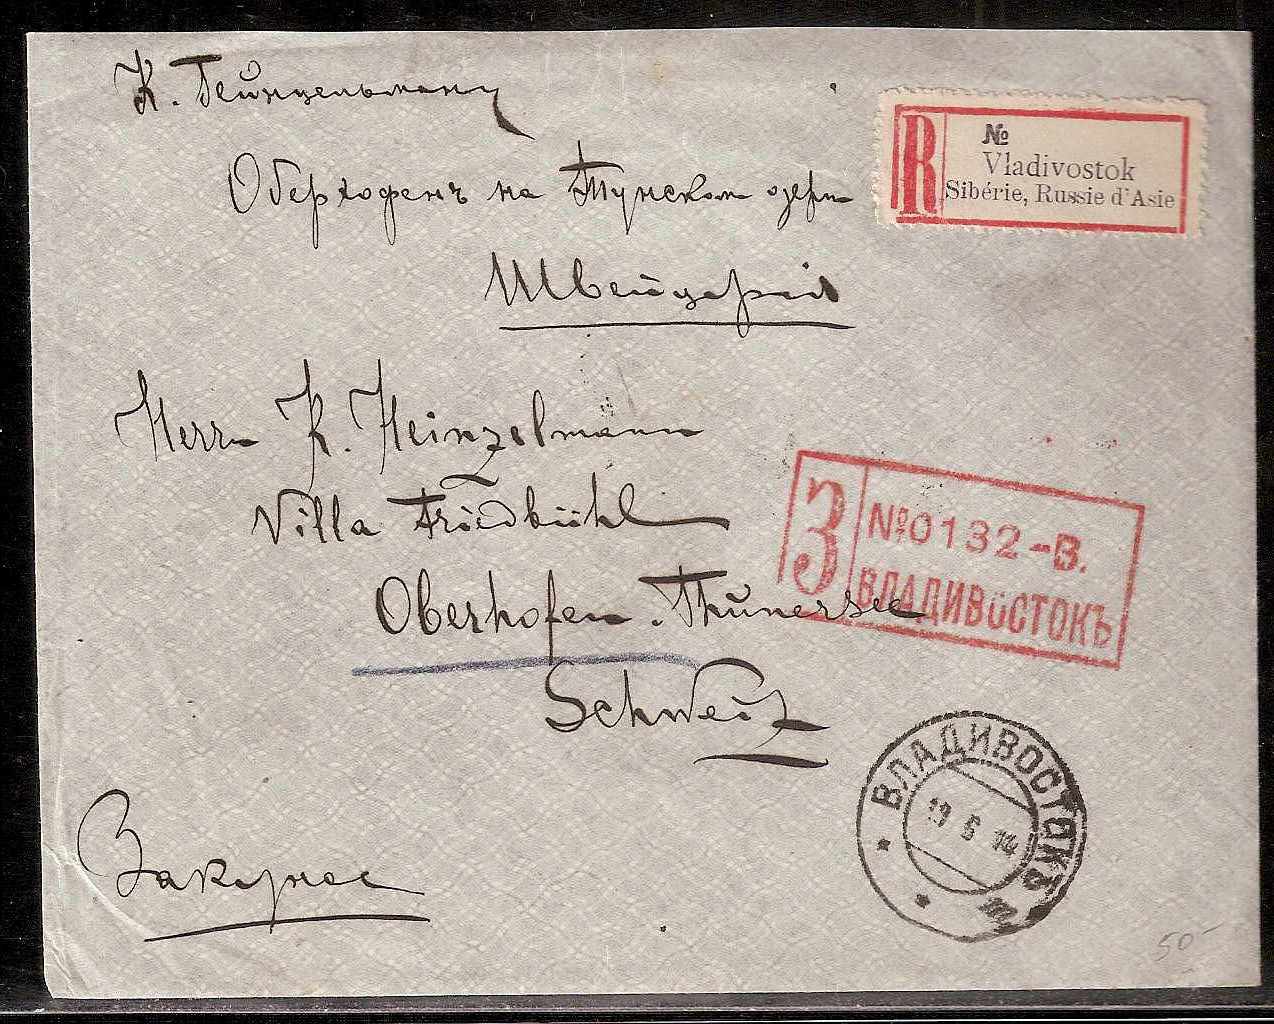 К. Гейнцельману
Оберхофенъ на Тунском озерѣ
Швейцарія
R
№
Vladivostok
Sibérie, Russie d'Asie
Herrn K. Heinzelmann
Villa Friedbühl
Oberhofen. Thunersee
Schweiz
З
№0132-В.
ВЛАДИВОСТОКЪ
Заказное
ВЛАДИВОСТОКЪ
19 6 14
50-